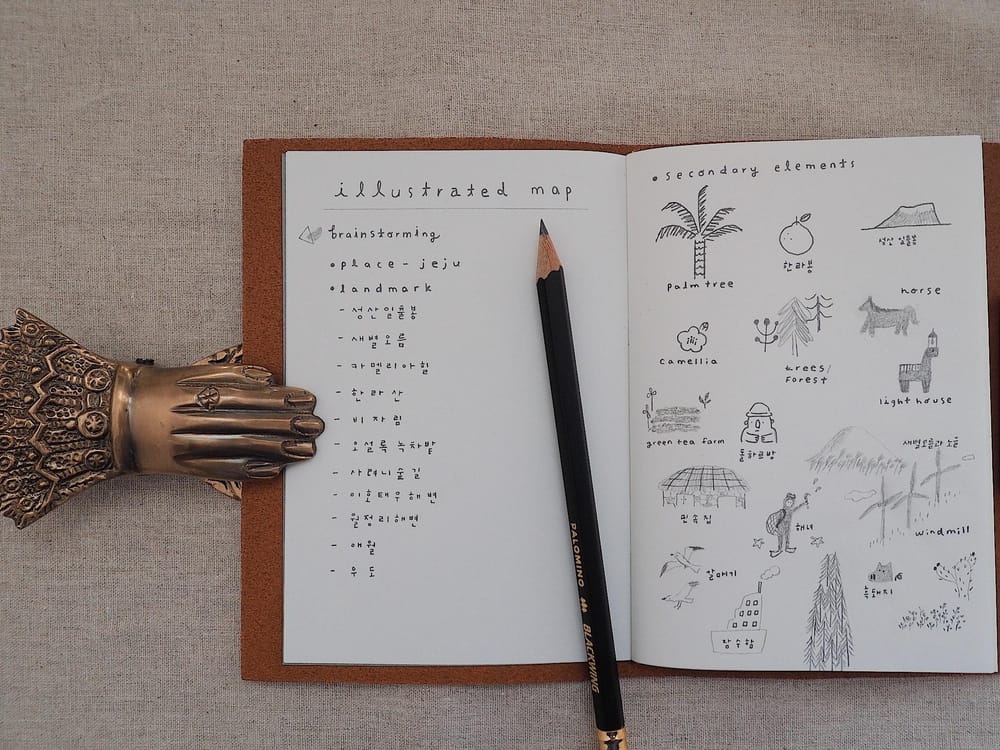 illustrated map
brainstorming
• place - jeju
• landmark
- 성산일출봉
- 새별오름
- 카멜리아힐
- 한라산
- 비자림
- 오설록 녹차밭
- 사려니숲길
- 이호테우해변
- 월정리해변
- 애월
- 우도
• secondary elements
palm tree
한라봉
성산 일출봉
horse
camellia
trees/
forest
light house
green tea farm
돌하르방
새별오름과 노을
민속집
해녀
windmill
갈매기
흑돼지
잠수함
PALOMINO BLACKWING